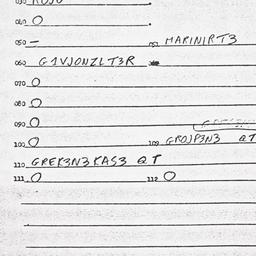 040 O
050 – MARINIRT3
060 G1VJONZLT3R
070 O
080 O
090 O
100 O 109 GROJP3N3 QT
110 GREK3N3KAS3 QT
111 O 112 O